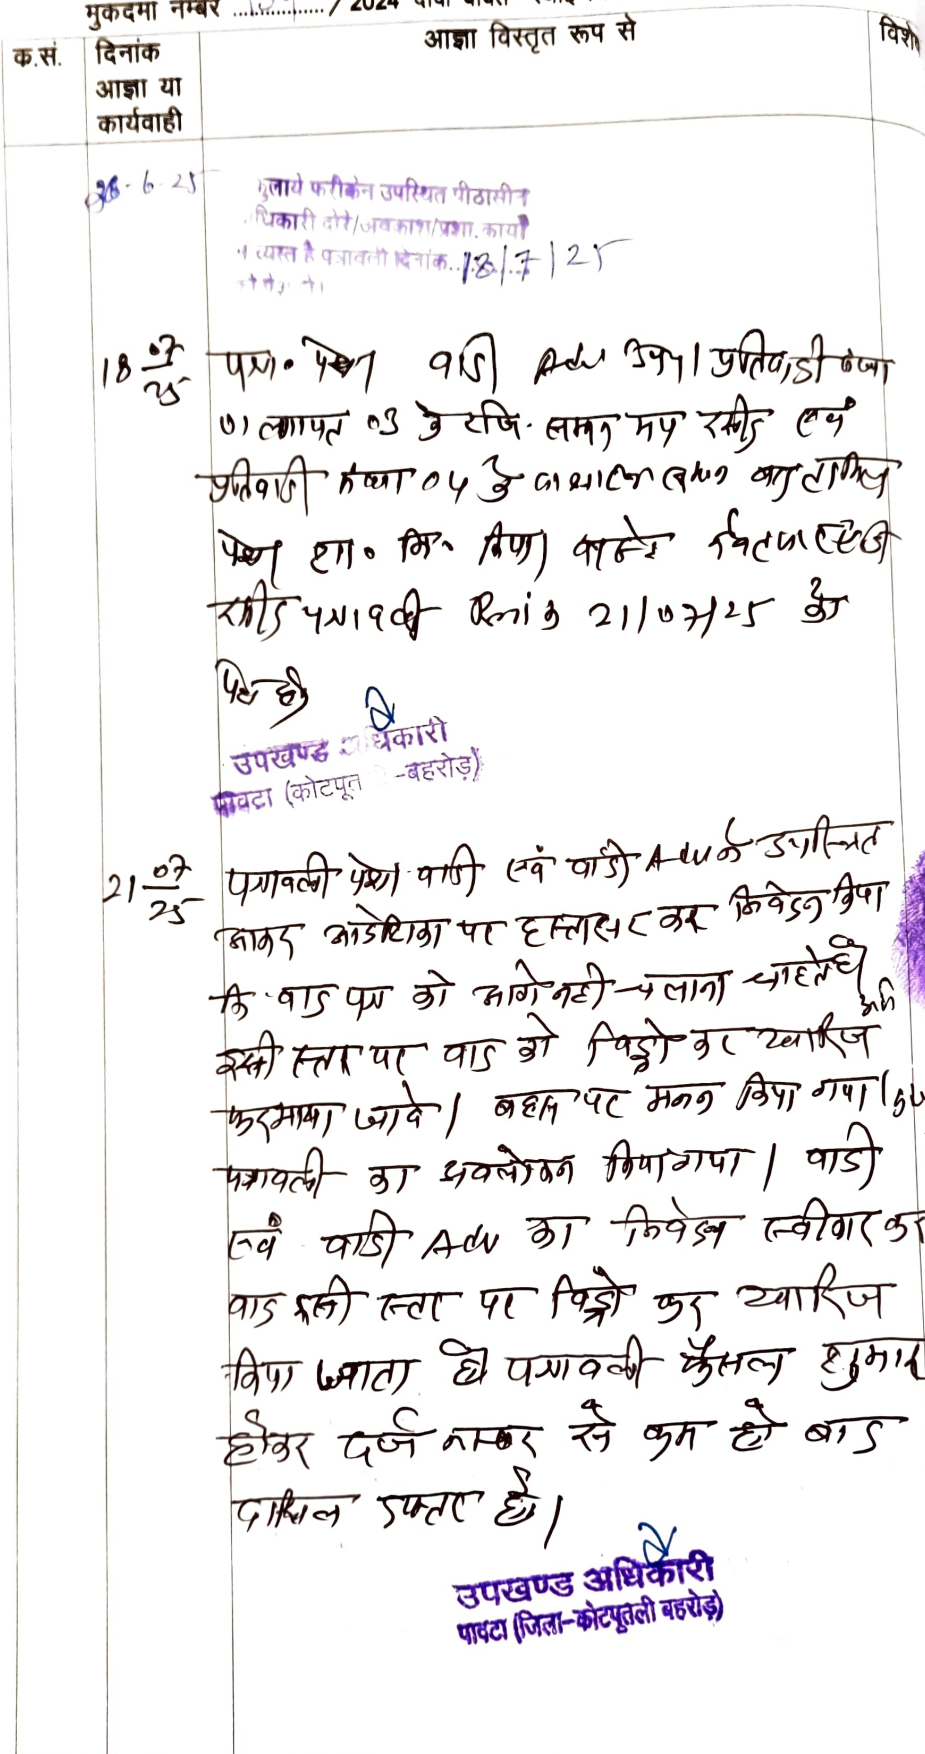 मुकदमा नम्बर ................ / 2024
क.सं.
दिनांक
आज्ञा या
कार्यवाही
आज्ञा विस्तृत रूप से
26-6-25
बुलाये फरीकेन उपस्थित पीठासीन
धिकारी दौरे/अवकाश/प्रशा. कार्यो
व्यस्त है पत्रावली दिनांक..18/7/25
18 07/25
पत्रा॰ पेश वादी Adv उप। प्रतिवादी संख्या
01 लगायत 03 के रजि. समन मय रसीद एवं
प्रतिवादी संख्या 04 के समन बाद तामिल
पेश शा॰ मि॰ किया।
रसीद पत्रावली दिनांक 21/07/25 को
पेश हो
उपखण्ड अधिकारी
पावटा (कोटपूत -बहरोड़)
21 07/25
पत्रावली पेश। वादी एवं वादी Adv ने उपस्थित
आकर आदेशिका पर हस्ताक्षर कर निवेदन किया
कि वाद पत्र को आगे नही चलाना चाहते है
इसी स्तर पर वाद को विड्रो कर खारिज
फरमाया जावे। बहस पर मनन किया गया।
पत्रावली का अवलोकन किया गया। वादी
एवं वादी Adv का निवेदन स्वीकार कर
वाद इसी स्तर पर विड्रो कर खारिज
किया जाता है पत्रावली फैसल शुमार
होकर दर्ज नम्बर से कम हो बाद
दाखिल दफ्तर हो।
उपखण्ड अधिकारी
पावटा (जिला-कोटपूतली बहरोड़)